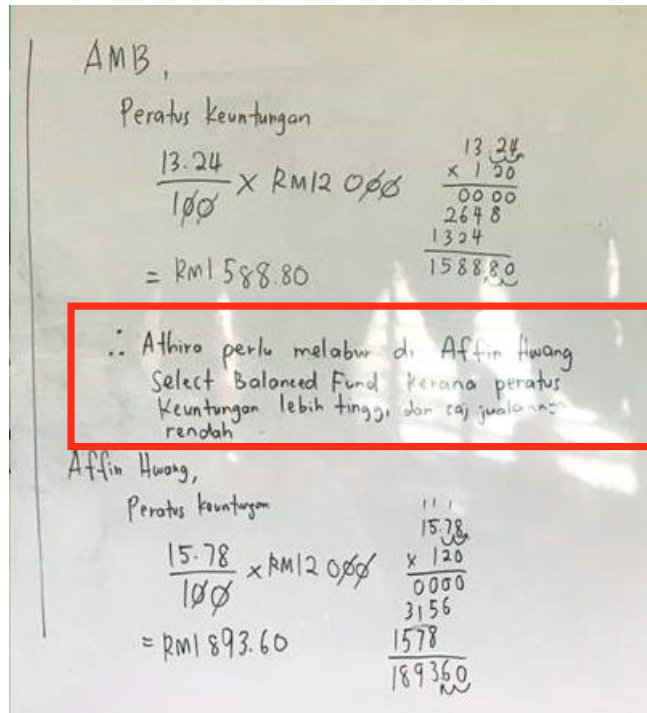 AMB,
Peratus Keuntungan
13.24
100
× RM12 000
= RM1 588.80
13.24
× 120
0000
2648
1324
158880
∴ Athira perlu melabur di Affin Hwang
Select Balanced Fund kerana peratus
Keuntungan lebih tinggi dan caj jualannya
rendah
Affin Hwang,
Peratus keuntungan
15.78
100
× RM12 000
= RM1 893.60
111
15.78
× 120
0000
3156
1578
189360